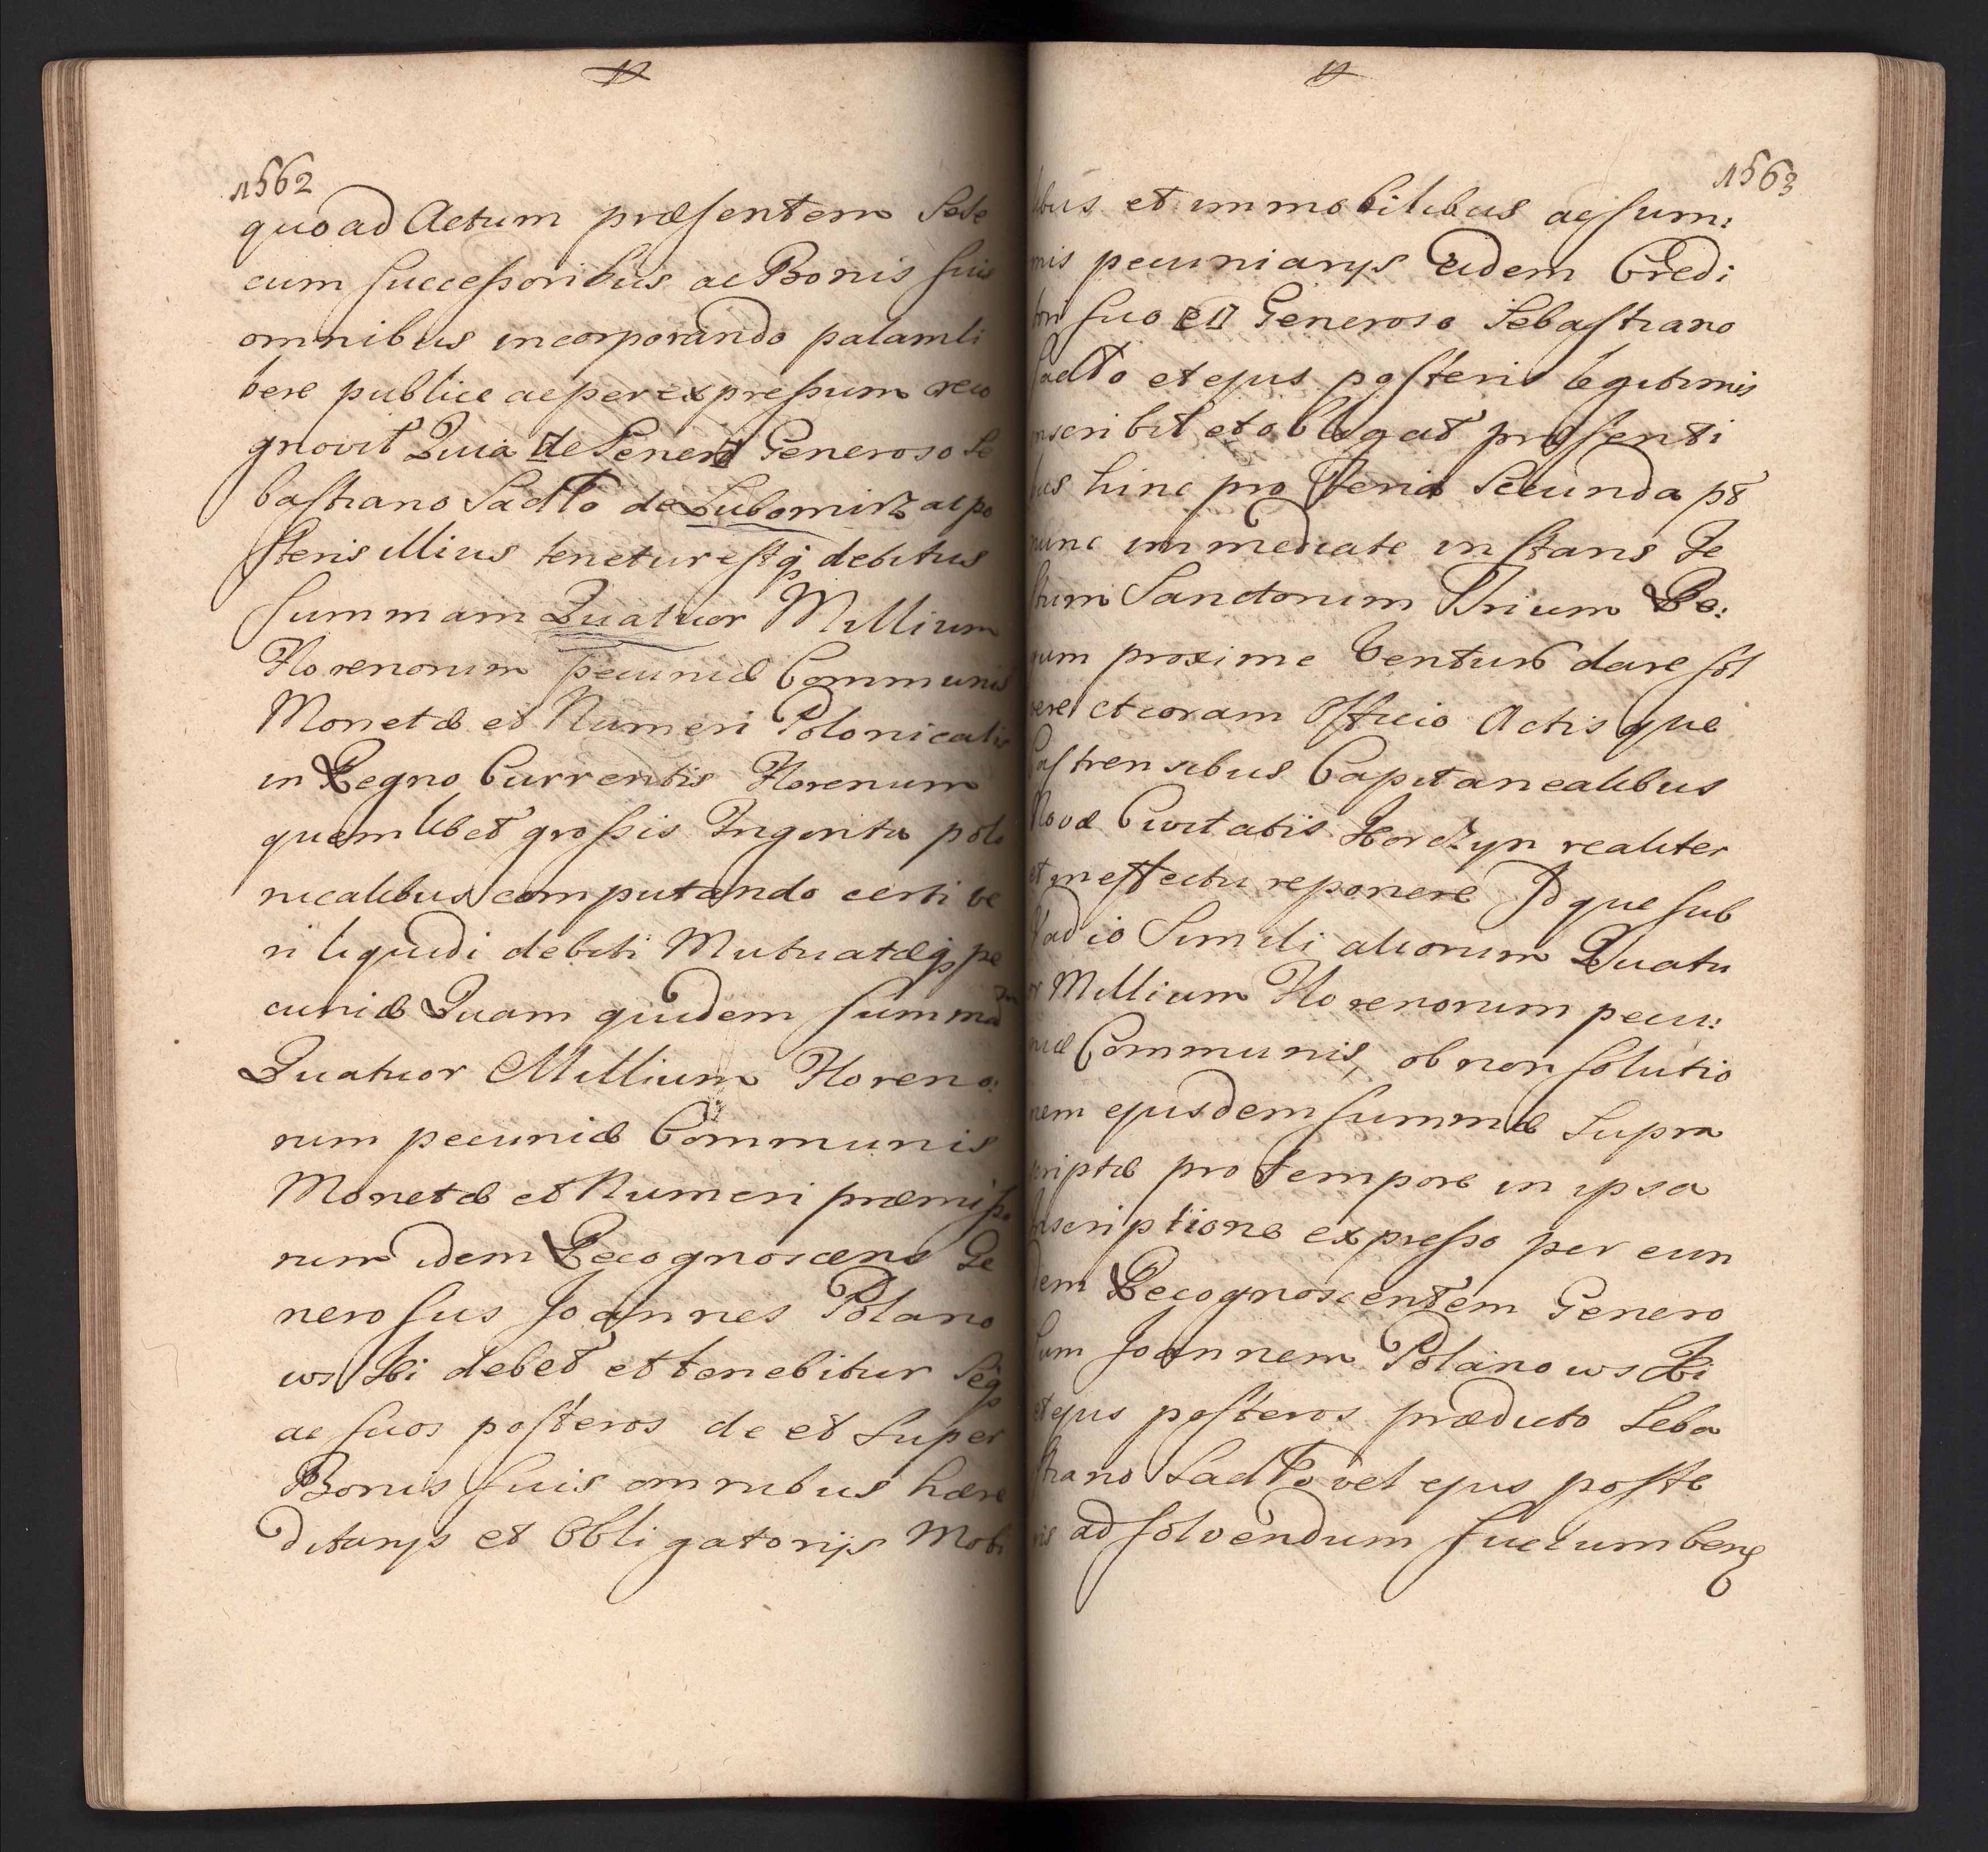 1562
quoad Actum præsentem Sese
cum successoribus ac Bonis suis
omnibus incorporando palam li
bere publice ac per expressum reco
gnovit Quia de Genero Generoso Se
bastiano Sadło de Lubomirz ac po
steris illius tenetur estq debitus
summam Quatuor Millium
Florenorum pecuniæ Communis
Monetæ et Numeri Polonicalis
in Regno Currentis Florenum
quemlibet grossis Trigenta polo
nicalibus computando certi ve
ri liquidi debiti Mutuatæq pe
cuniæ Quam quidem summam
Quatuor Millium Floreno:
rum pecuniæ Communis
Monetæ et Numeri præmisso
rum idem Recognoscens Ge
nerosus Joannes Polano
wski debet et tenebitur Seq
ac suos posteros de et super
Bonis suis omnibus hære
ditarijs et Obligatorijs Mobi
1563
libus et immobilibus ac sum:
mis pecuniarijs eidem Credi:
tori suo Generoso Sebastiano
Sadło et ejus posteris legitimis
inscribit et obligat præsenti
bus hinc pro Feria Secunda pt
nunc immediate instans Fe
stum Sanctorum Trium Re:
gum proxime Venturo dare sol
vere et coram Officio Actisque
Castrensibus Capitanealibus
Novæ Civitatis Korczyn realiter
et in effectu reponere Idque sub
Vadio Simili aliorum Quatu
or Millium Florenorum pecu:
niæ Communis, ob non solutio
nem ejusdem summæ Supra
scriptæ pro tempore in ipsa
Inscriptione expresso per eun
dem Recognoscentem Genero
sum Joannem Polanowski
et ejus posteros prædicto Seba
stiano Sadło vel ejus poste
ris ad solvendum succumbenq